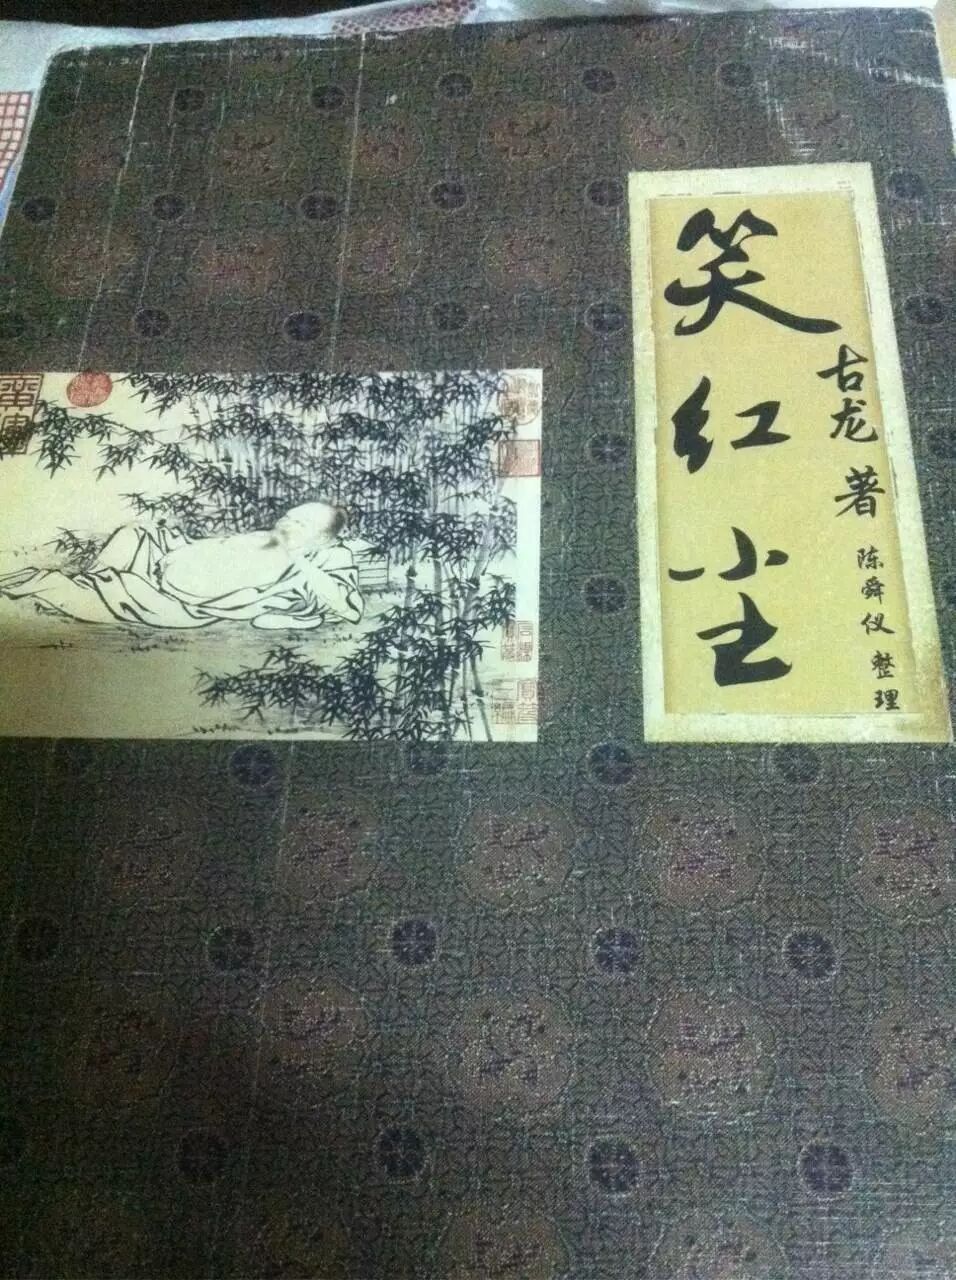 笑红尘
古龙 著
陈舜仪 整理